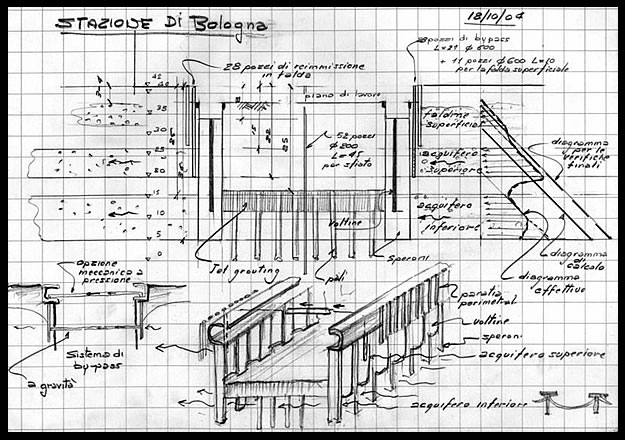 STAZIONE Di Bologna
18/10/04
28 pozzi di reimmissione
in falda
28 pozzi di bypass
L=21 φ600
+ 11 pozzi φ600 L=10
per la falda superficiale
piano di lavoro
45
40
35
30
25
20
15
10
5
0
52 pozzi
φ200
L=45
per sfiato
faldine
superficiali
acquifero
superiore
acquifero
inferiore
diagramma
per le
verifiche
finali
diagramma
di
calcolo
diagramma
effettivo
voltine
Jet grouting
pali
speroni
opzione
meccanica a
pressione
Sistema di
by-pass
a gravità
paratia
perimetral
voltine
speroni
acquifero superiore
acquifero inferiore